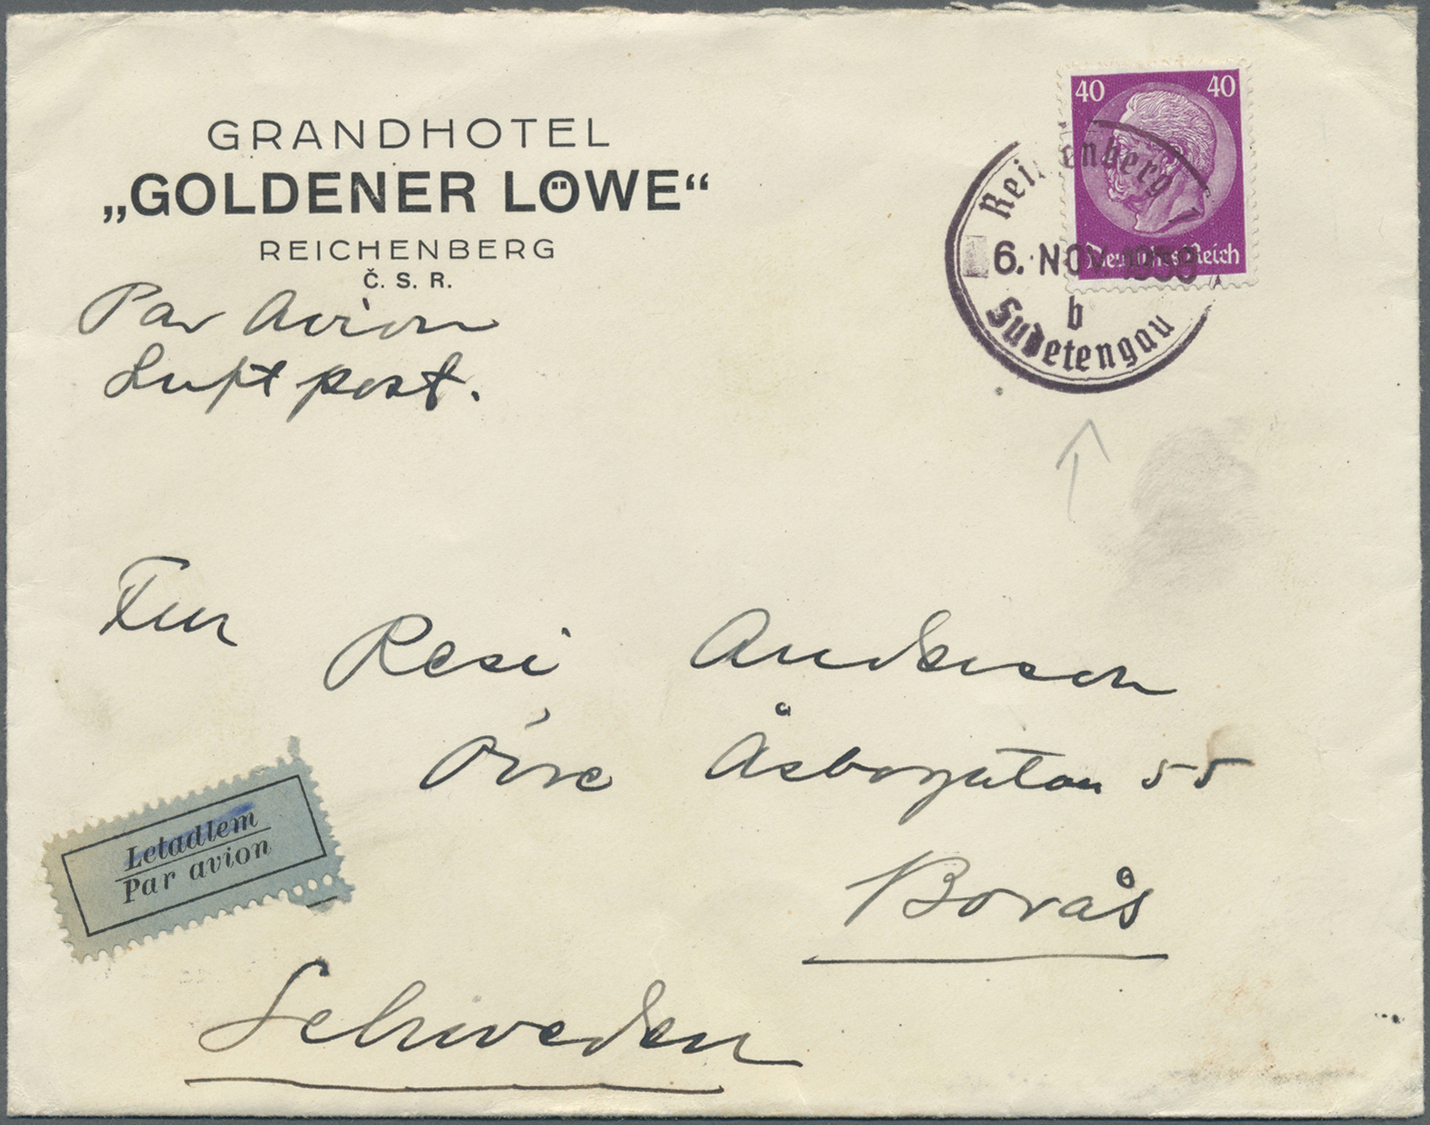 GRANDHOTEL
„GOLDENER LÖWE“
REICHENBERG
Č. S. R.
Par Avion
Luftpost.
40 40
Deutsches Reich
Reichenberg 1
6. NOV. 1938
b
Sudetengau
Resi Anderson
Åsbogatan 55
Borås
Schweden
Letadlem
Par avion